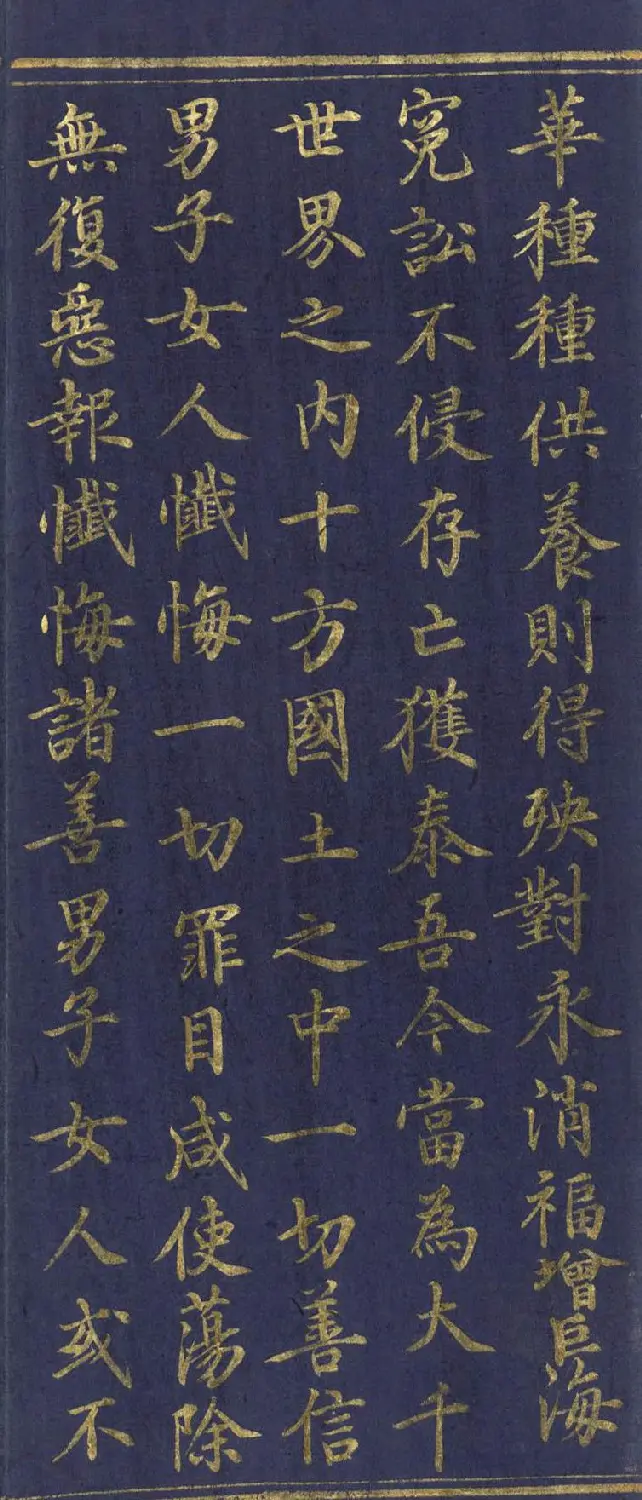 華種種供養則得殃對永消福增巨海
冤訟不侵存亡獲泰吾今當為大千
世界之内十方國土之中一切善信
男子女人懴悔一切罪目咸使蕩除
無復惡報懴悔諸善男子女人或不